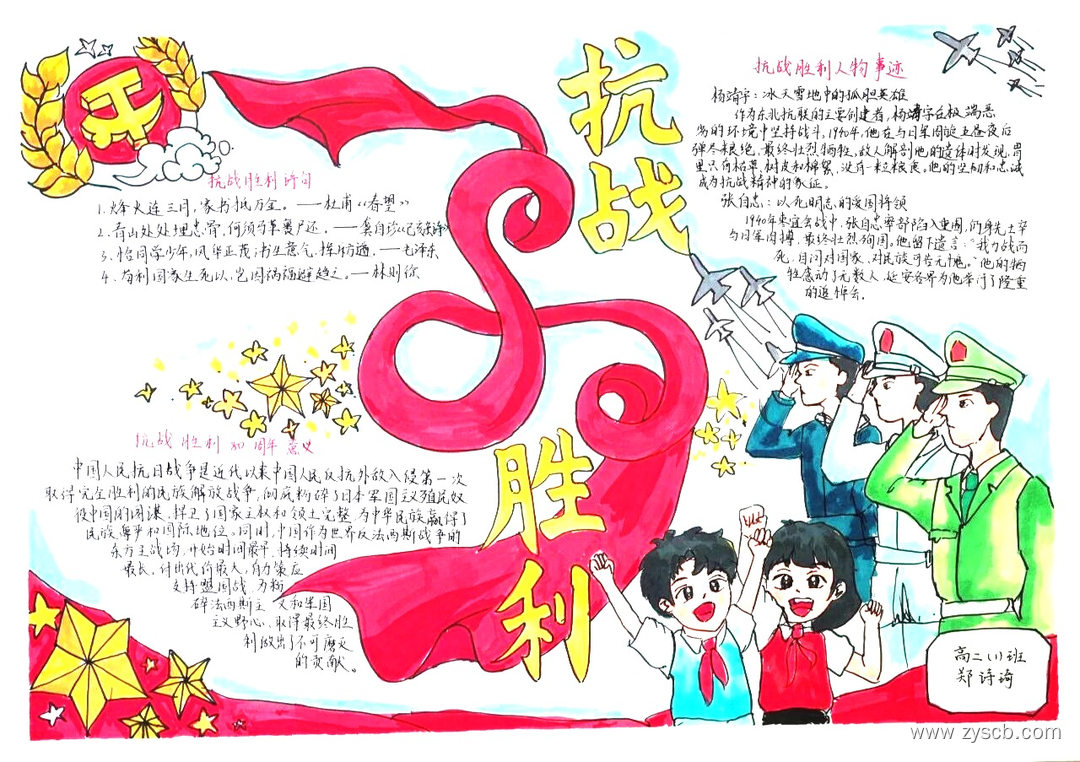 抗战
胜利
抗战胜利诗句
1. 烽火连三月，家书抵万金。——杜甫《春望》
2. 青山处处埋忠骨，何须马革裹尸还。——龚自珍《己亥杂诗》
3. 恰同学少年，风华正茂；书生意气，挥斥方遒。——毛泽东
4. 苟利国家生死以，岂因祸福避趋之。——林则徐
抗战胜利人物事迹
杨靖宇：冰天雪地中的孤胆英雄
作为东北抗联的主要创建者，杨靖宇在极端恶
劣的环境中坚持战斗。1940年，他在与日军周旋五昼夜后
弹尽粮绝，最终壮烈牺牲。敌人解剖他的遗体时发现，胃
里只有枯草、树皮和棉絮，没有一粒粮食。他的坚韧和忠诚
成为抗战精神的象征。
张自忠：以死明志的爱国将领
1940年枣宜会战中，张自忠率部陷入重围，仍身先士卒
与日军肉搏，最终壮烈殉国。他留下遗言：“我力战而
死，自问对国家、对民族可告无愧。”他的牺
牲感动了无数人，延安各界为他举行了隆重
的追悼会。
抗战胜利80周年意义
中国人民抗日战争是近代以来中国人民反抗外敌入侵第一次
取得完全胜利的民族解放战争，彻底粉碎了日本军国主义殖民奴
役中国的图谋，捍卫了国家主权和领土完整，为中华民族赢得了
民族尊严和国际地位。同时，中国作为世界反法西斯战争的
东方主战场，开始时间最早，持续时间
最长，付出代价最大，有力策应
支持盟国战，为粉
碎法西斯主义和军国
主义野心、取得最终胜
利做出了不可磨灭
的贡献。
高二(1)班
郑诗琦
www.zyscb.com